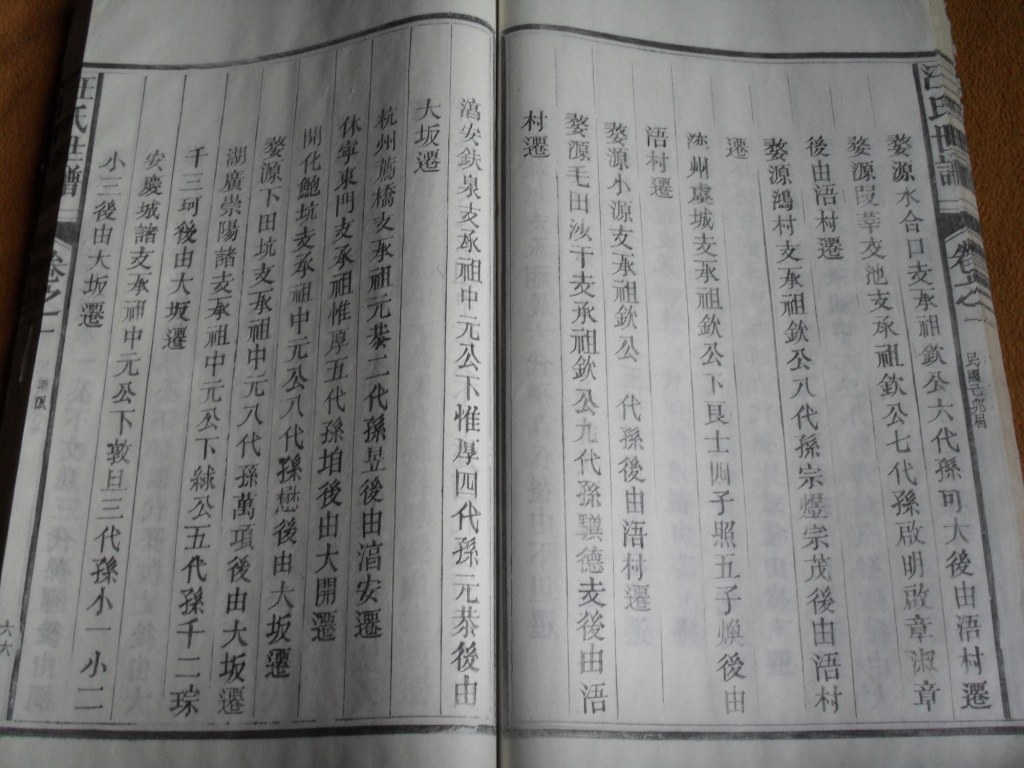 汪氏世譜
卷之一
婺源水合口支承祖欽公六代孫可大後由浯村遷
婺源莘支池支承祖欽公七代孫啟明啟章淑章
後由浯村遷
婺源鴻村支承祖欽公八代孫宗煜宗茂後由浯村
遷
州虞城支承祖欽公下良士四子照五子煥後由
浯村遷
婺源小源支承祖欽公代孫後由浯村遷
婺源毛田沙干支承祖欽公九代孫驥德支後由浯
村遷
安鉄泉支承祖中元公下惟厚四代孫元恭後由
大坂遷
杭州薦橋支承祖元恭二代孫昱後由安遷
休寧東門支承祖惟厚五代孫垍後由大開遷
開化鮑坑支承祖中元公八代孫懋後由大坂遷
婺源下田坑支承祖中元八代孫萬項後由大坂遷
湖廣崇陽諸支承祖中元公下綠公五代孫千二琮
千三珂後由大坂遷
安慶城諸支承祖中元公下敦旦三代孫小一小二
小三後由大坂遷
汪氏世譜
卷之一
六六